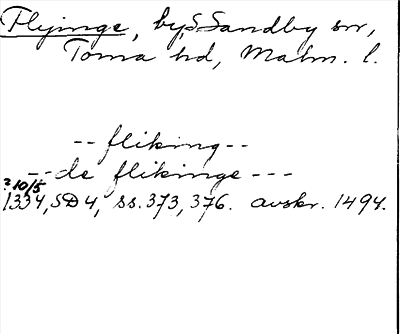 Flyinge, by, S Sandby sn,
Torna hd, Malm. l.
-- fliking --
-- de flikinge ---
? 10/5
1334, SD 4, ss. 373, 376. avskr. 1494.